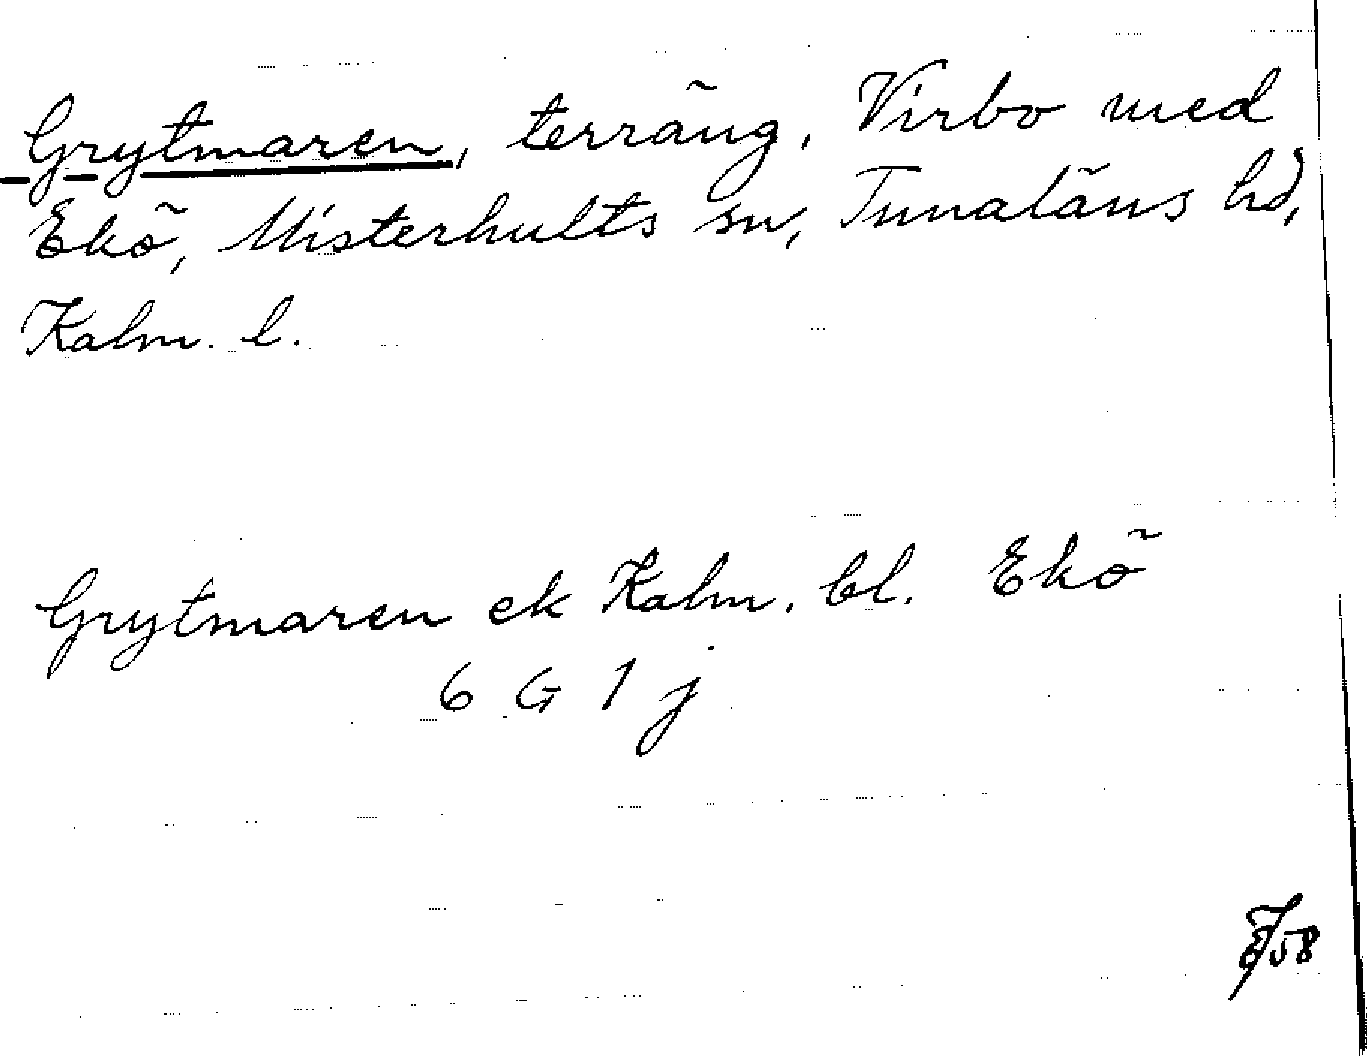 Grytmaren, terräng, Virbo med
Ekö, Misterhults sn, Tunaläns hd,
Kalm. l.
Grytmaren ek Kalm. bl. Ekö
6 G 1 j
58